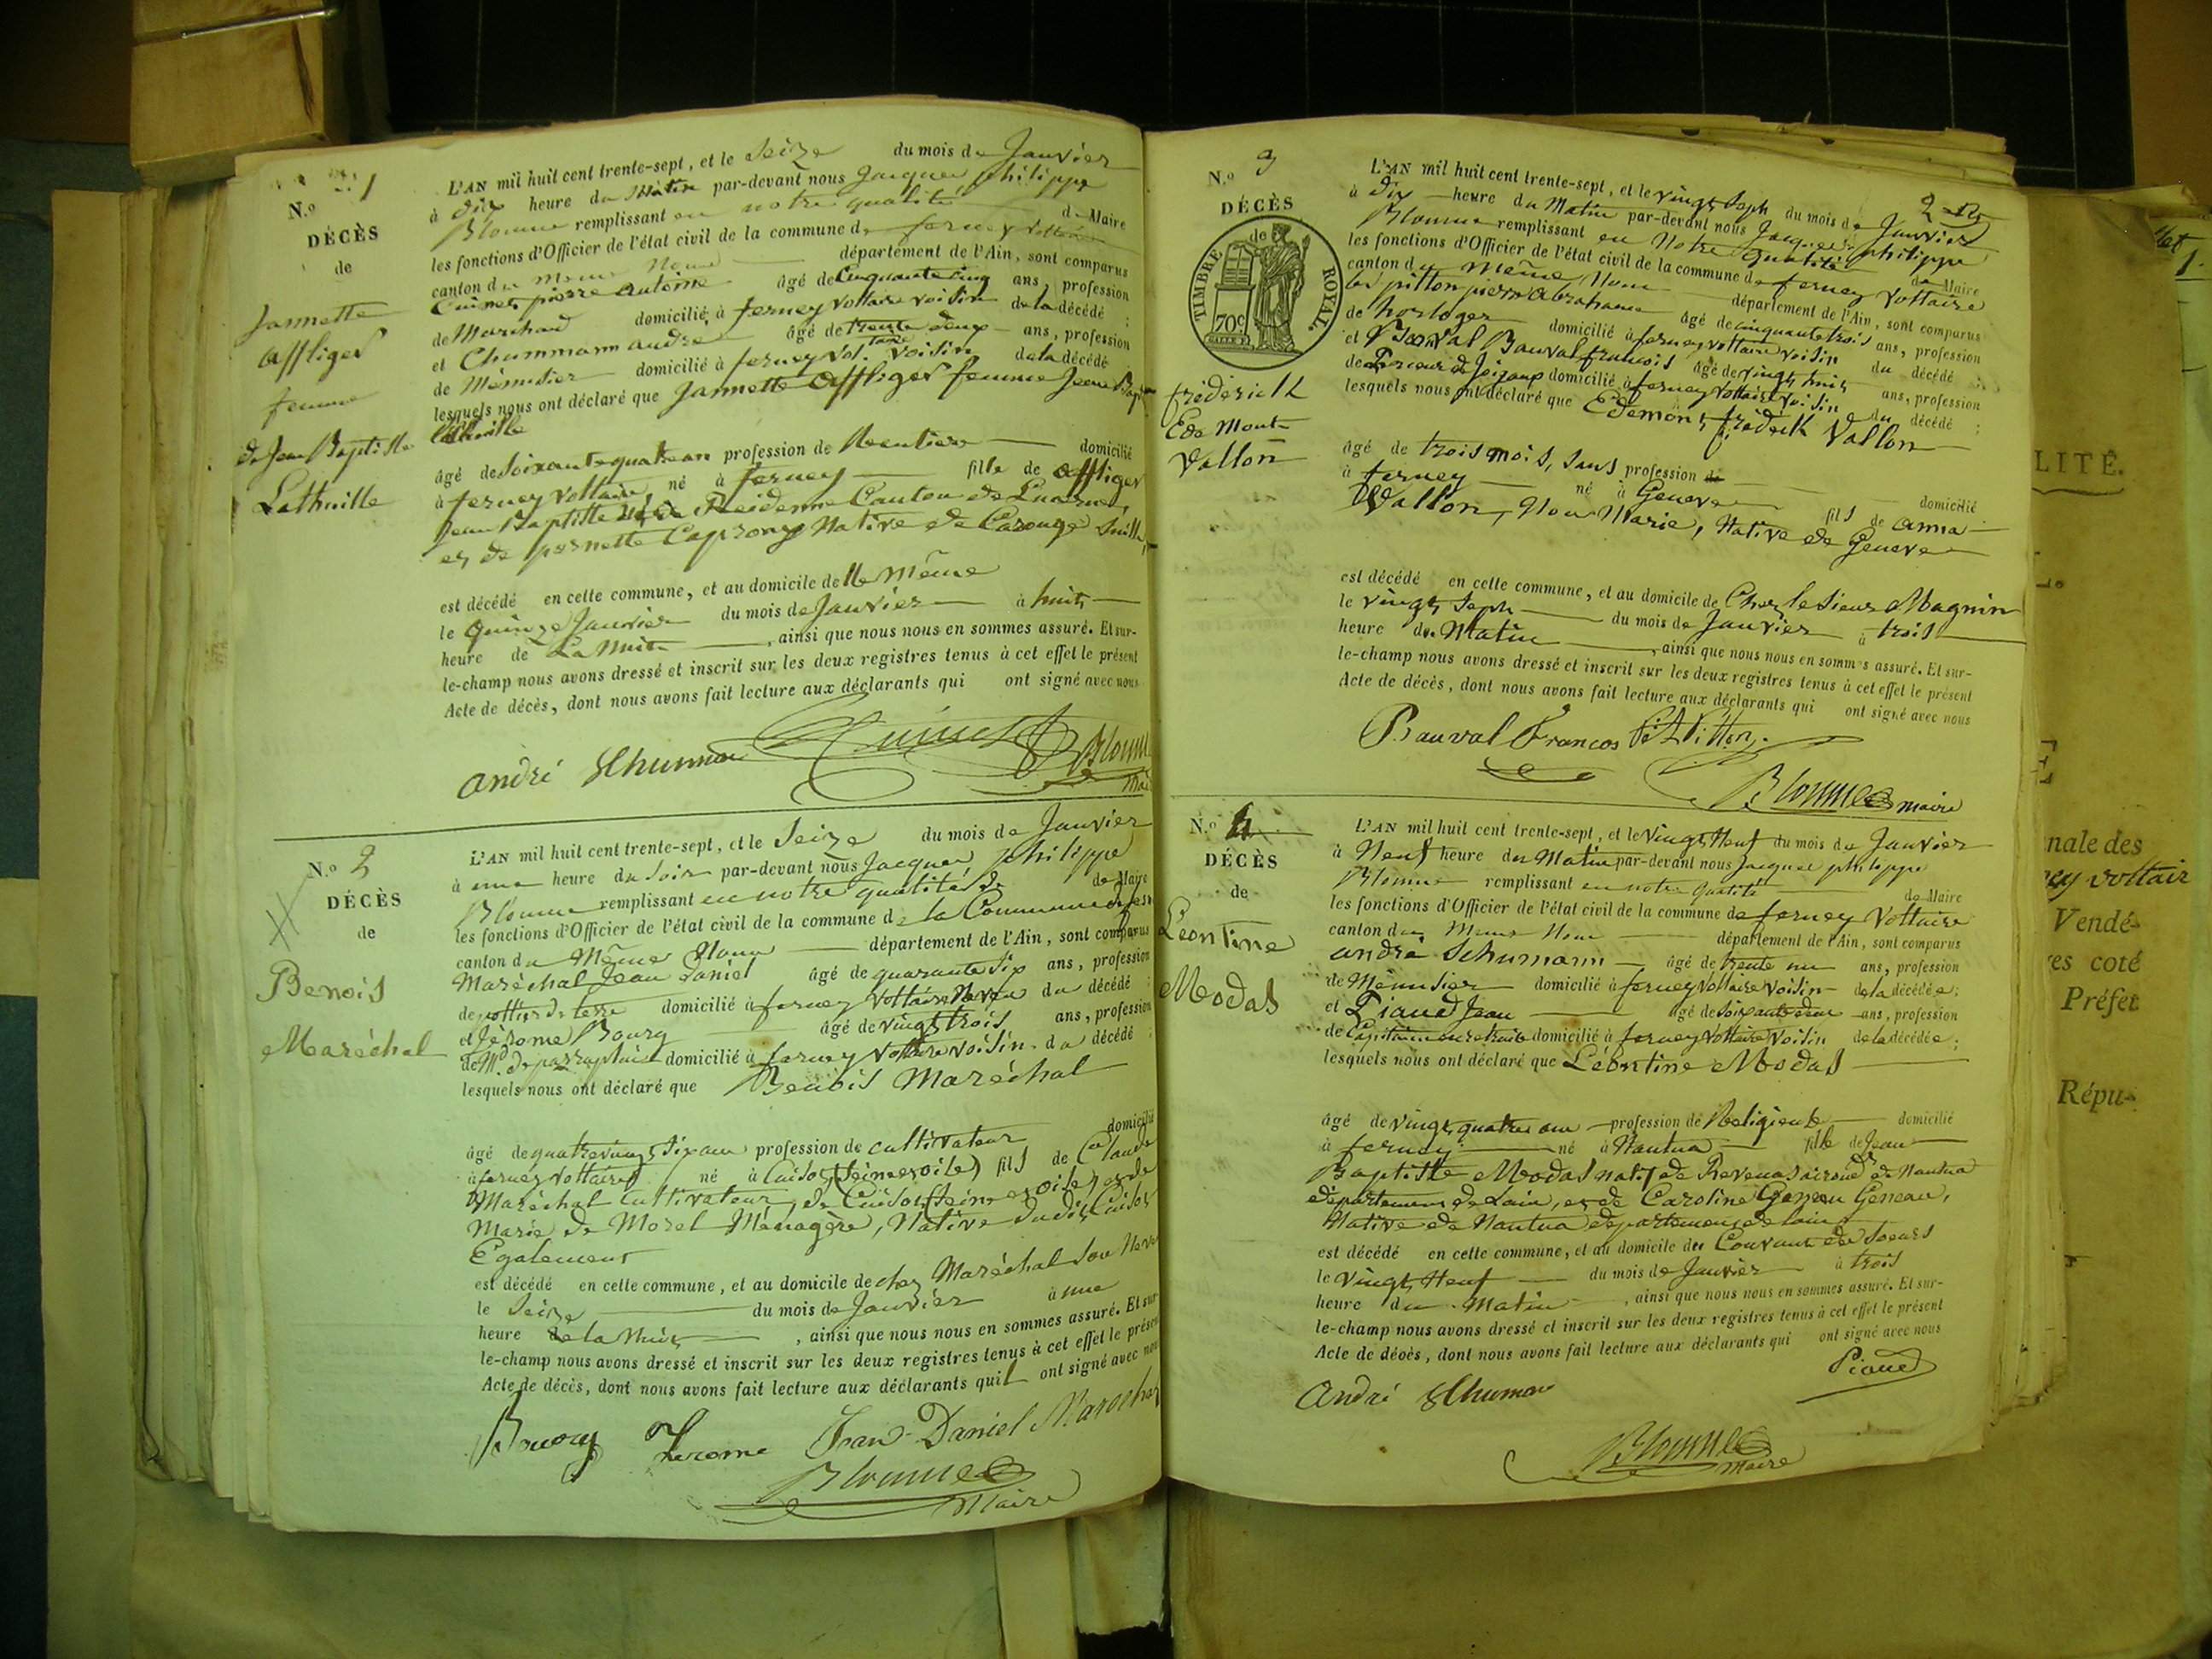 N.o 1
DÉCÈS
de
Jannette
affliger
femme
de Jean Baptiste
Lathuille
L'AN mil huit cent trente-sept, et le Seize du mois de Janvier
à dix heure du Matin par-devant nous Jacques philippe
Blonne remplissant en notre qualité de Maire
les fonctions d'Officier de l'état civil de la commune de ferney Voltaire
canton du meme Nom département de l'Ain, sont comparus
Cuinet pierre antoine âgé de Cinquante cinq ans, profession
de Marchand domicilié à ferney Voltaire voisin de la décédé ;
et Chummann andré âgé de trente deux ans, profession
de Ménusier domicilié à ferney Vol.taire Voisin de la décédé
lesquels nous ont déclaré que Jannette affliger femme Jean Bap
Lathuille
âgé de Soixante quatre an profession de Rentiere domicilié
à ferney Voltaire, né à ferney fille de affliger
Jean Baptiste Canton de Lucerne,
et de pernette Native de Carouge Suisse
est décédé en cette commune, et au domicile de lle même
le quinze Janvier du mois de Janvier à huit
heure de La Nuit, ainsi que nous nous en sommes assuré. Et sur-
le-champ nous avons dressé et inscrit sur les deux registres tenus à cet effet le présent
Acte de décès, dont nous avons fait lecture aux déclarants qui ont signé avec nous
andré Schuman Cuinet Blonne
N.o 2
DÉCÈS
de
Benois
Maréchal
L'AN mil huit cent trente-sept, et le Seize du mois de Janvier
à une heure du Soir par-devant nous Jacques philippe
Blonne remplissant en notre qualité de de Maire
les fonctions d'Officier de l'état civil de la commune de la Commune de fer
canton du Même Nom département de l'Ain, sont comparus
Maréchal Jean Daniel âgé de quarante Six ans, profession
de pottier de terre domicilié à ferney Voltaire Neveu du décédé ;
et Jérome Bourg âgé de vingt trois ans, profession
de Md. de parrapluie domicilié à ferney Voltaire voisin du décédé
lesquels nous ont déclaré que Benois Maréchal
âgé de quatrevingt Six ans profession de cultivateur domicilié
à ferney Voltaire né à Cuisot (Seine et oise) fils de Claude
Maréchal Cultivateur, de Cuisot (Seine et oise) et de
Marie de Morel Ménagère, Native dudit Cuisot
Egalement
est décédé en cette commune, et au domicile de chez Maréchal Son Neve
le Seize du mois de Janvier à une
heure de la Nuit, ainsi que nous nous en sommes assuré. Et sur
le-champ nous avons dressé et inscrit sur les deux registres tenus à cet effet le présen
Acte de décès, dont nous avons fait lecture aux déclarants quil ont signé avec nou
Bourg Jerome Jean-Daniel Marechal
Blonne
Maire
N.o 3
DÉCÈS
de
TIMBRE ROYAL.
70c
frédérick
Ede Mont
Vallon
L'AN mil huit cent trente-sept, et le vingt Sept du mois de Janvier
à dix heure du Matin par-devant nous Jacques philippe
Blonne remplissant en Notre qualité de Maire
les fonctions d'Officier de l'état civil de la commune de ferney Voltaire
canton du même Nom département de l'Ain, sont comparus
pitton pierre abraham âgé de cinquante trois ans, profession
de horloger domicilié à ferney Voltaire voisin du décédé ;
et Bauval francois âgé de vingt huit ans, profession
domicilié à ferney Voltaire voisin du décédé ;
lesquels nous ont déclaré que Edemont fréderick Vallon
âgé de trois mois, Sans profession de domicilié
à ferney né à Geneve fils de anna
Vallon, Nom Marie, Native de Geneve
est décédé en cette commune, et au domicile de Chez le Sieur Magnin
le vingt Sept du mois de Janvier à trois
heure du Matin, ainsi que nous nous en sommes assuré. Et sur-
le-champ nous avons dressé et inscrit sur les deux registres tenus à cet effet le présent
Acte de décès, dont nous avons fait lecture aux déclarants qui ont signé avec nous
Bauval Francos Pitton
Blonne maire
N.o 4
DÉCÈS
de
Léontine
Modas
L'AN mil huit cent trente-sept, et le vingt Neuf du mois de Janvier
à Neuf heure du Matin par-devant nous Jacques philippe
Blonne remplissant en notre qualité de Maire
les fonctions d'Officier de l'état civil de la commune de ferney Voltaire
canton du Meme Nom département de l'Ain, sont comparus
andré Schumann âgé de trente un ans, profession
de Ménusier domicilié à ferney Voltaire Voisin de la décédée ;
et Piaud Jean âgé de Soixante deux ans, profession
de Capitaine en retraite domicilié à ferney Voltaire Voisin de la décédée ;
lesquels nous ont déclaré que Léontine Modas
âgé de vingt quatre ans profession de Religieuse domicilié
à ferney né à Nantua fille de Jean
Baptiste Modas natif de Revenas de Nantua
département de Lain, et de Caroline Geneau,
Native de Nantua département de lain
est décédé en cette commune, et au domicile du Couvant de Soeurs
le vingt Neuf du mois de Janvier à trois
heure du Matin, ainsi que nous nous en sommes assuré. Et sur-
le-champ nous avons dressé et inscrit sur les deux registres tenus à cet effet le présent
Acte de décès, dont nous avons fait lecture aux déclarants qui ont signé avec nous
Piaud
andré Schuman
Blonne
maire
LITÉ.
nale des
ey voltair
Vendé-
res coté
Préfet
Répu-